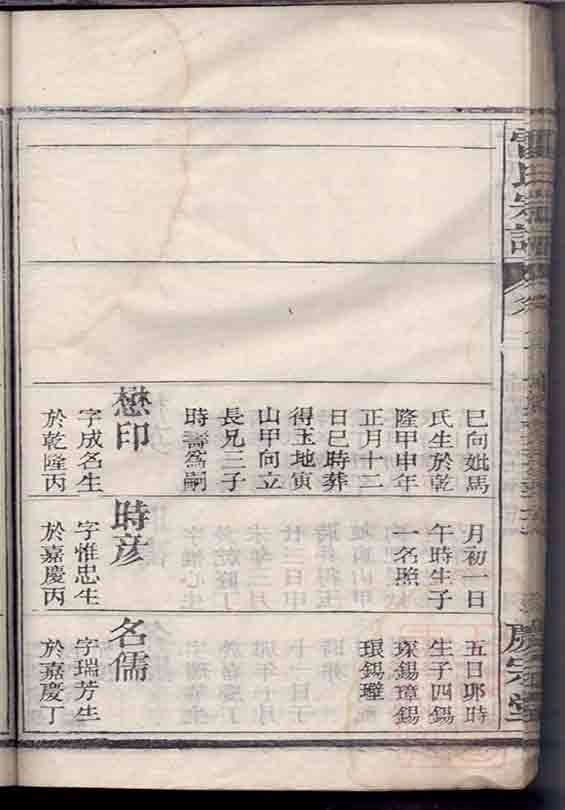 雷氏宗譜
慶宗堂
巳向妣馬
氏生於乾
隆甲申年
正月十二
日巳時葬
得玉地寅
山甲向立
長兄三子
時壽爲嗣
懋印
字成名生
於乾隆丙
月初一日
午時生子
一名照
時彦
字惟忠生
於嘉慶丙
五日卯時
生子四錫
琛錫璋錫
環錫瑽
名儒
字瑞芳生
於嘉慶丁